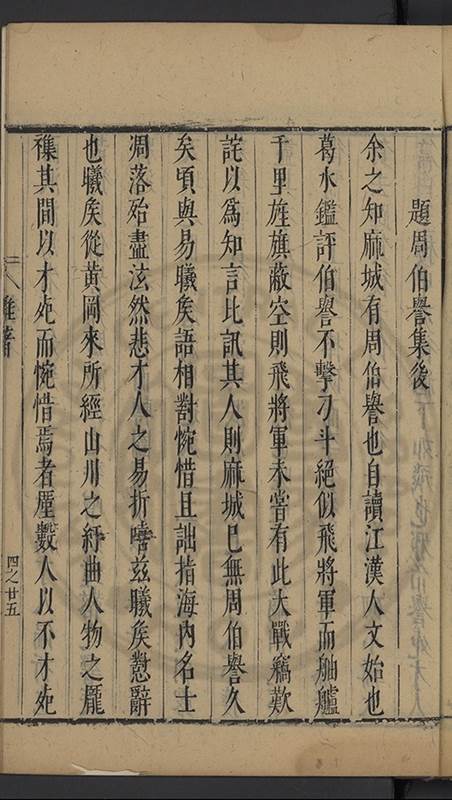 題周伯譽集後
余之知麻城有周伯譽也自讀江漢人文始也
葛水鑑評伯譽不擊刀斗絕似飛將軍而舳艫
千里旌旗蔽空則飛將軍未嘗有此大戰竊歎
詫以為知言比訊其人則麻城已無周伯譽久
矣頃與易曦矦語相對惋惜且詘指海內名士
凋落殆盡泫然悲才人之易折嘻茲曦矦懟辭
也曦矦從黃岡來所經山川之紆曲人物之龐
襍其間以才死而惋惜焉者厪數人以不才死
雜著
四之廿五